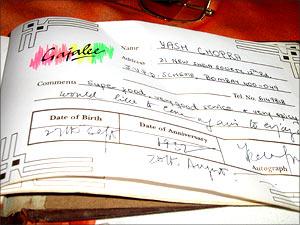 Gajalee
Name YASH CHOPRA
Address 21 NEW INDIA SOCIETY, 12th Rd.
J.V.P.D. SCHEME, BOMBAY 400 049
Tel. No.
Comments Super food, very good service &
would like to come again to enjoy
Date of Birth Date of Anniversary
27th Sept 1932
20th August
Autograph